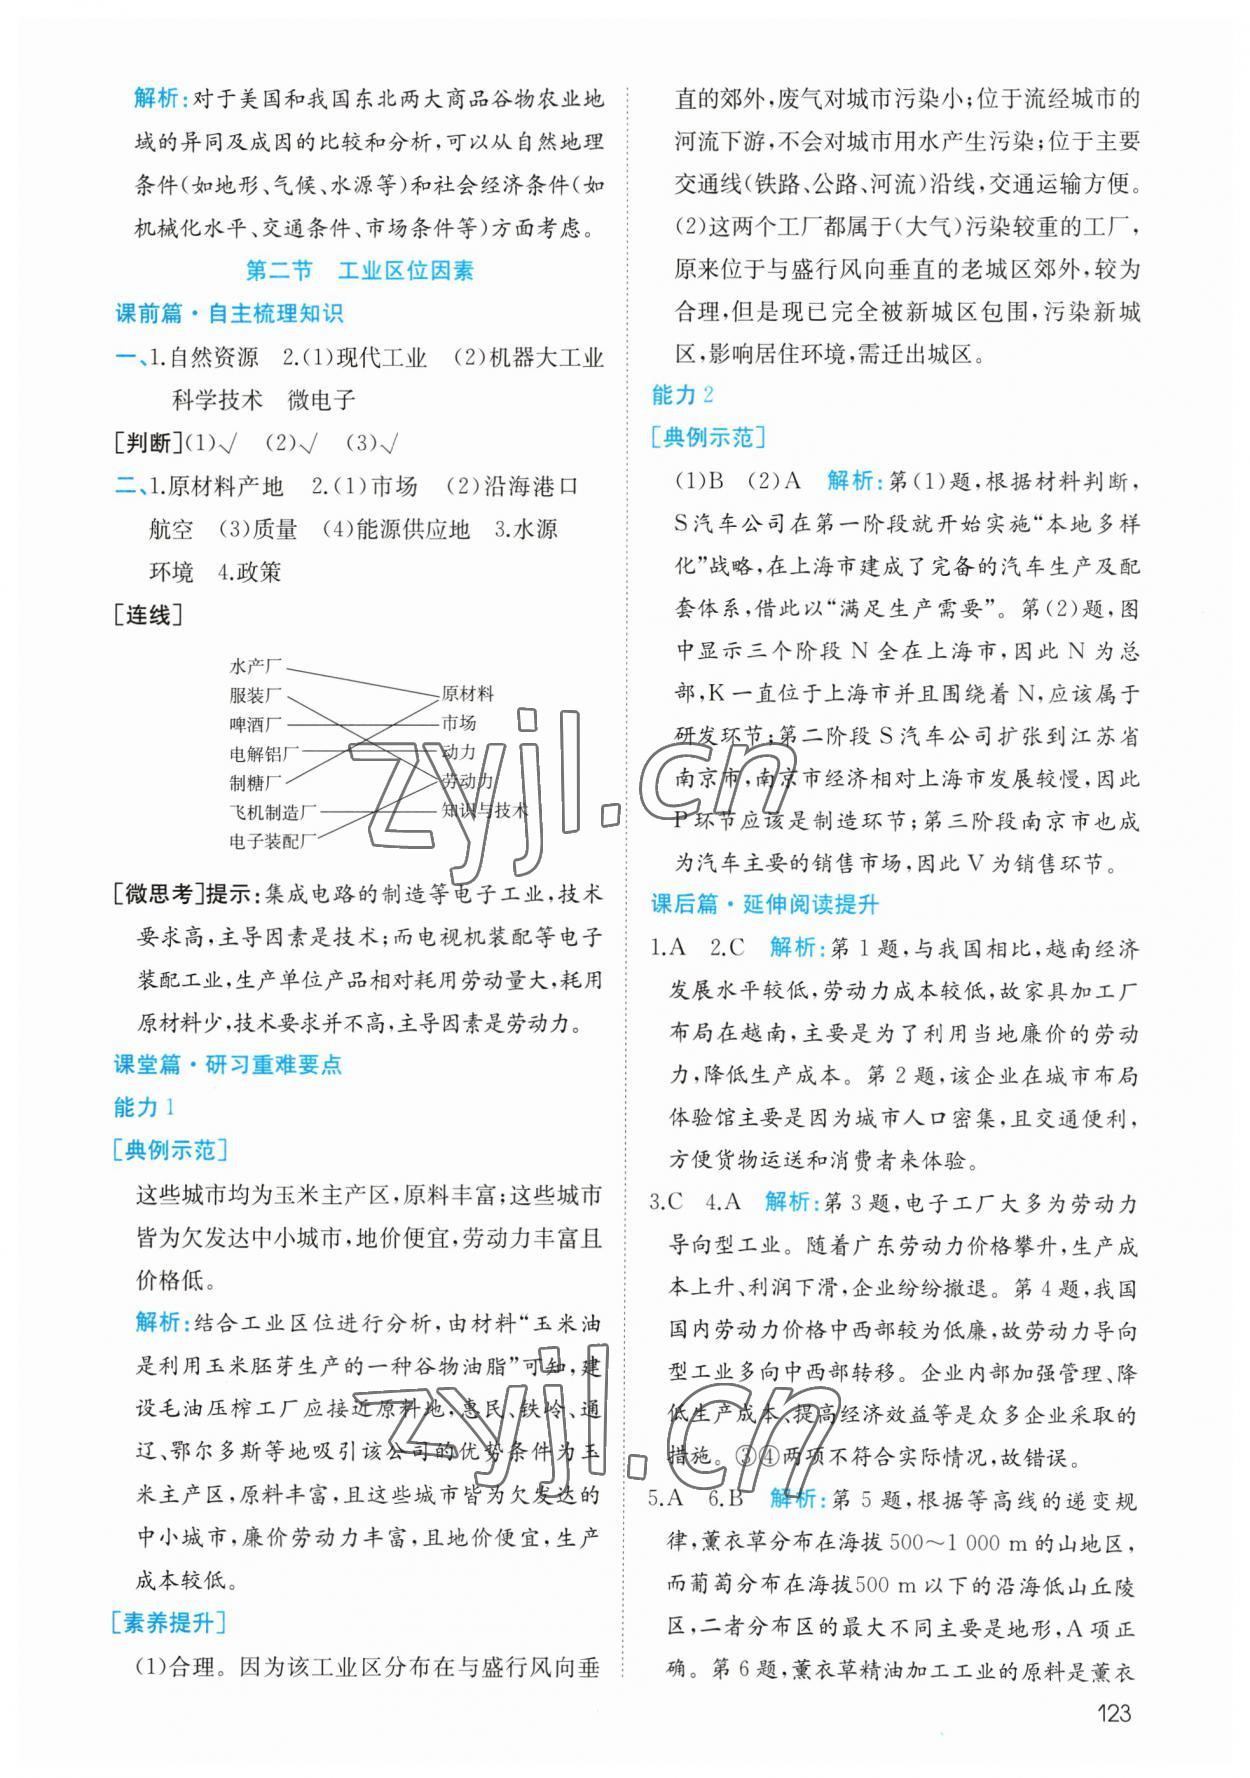 解析:对于美国和我国东北两大商品谷物农业地
域的异同及成因的比较和分析,可以从自然地理
条件(如地形、气候、水源等)和社会经济条件(如
机械化水平、交通条件、市场条件等)方面考虑。
第二节　工业区位因素
课前篇·自主梳理知识
一、1.自然资源　2.(1)现代工业　(2)机器大工业
科学技术　微电子
[判断](1)√　(2)√　(3)√
二、1.原材料产地　2.(1)市场　(2)沿海港口
航空　(3)质量　(4)能源供应地　3.水源
环境　4.政策
[连线]
水产厂
服装厂
啤酒厂
电解铝厂
制糖厂
飞机制造厂
电子装配厂
原材料
市场
动力
劳动力
知识与技术
[微思考]提示:集成电路的制造等电子工业,技术
要求高,主导因素是技术;而电视机装配等电子
装配工业,生产单位产品相对耗用劳动量大,耗用
原材料少,技术要求并不高,主导因素是劳动力。
课堂篇·研习重难要点
能力1
[典例示范]
这些城市均为玉米主产区,原料丰富;这些城市
皆为欠发达中小城市,地价便宜,劳动力丰富且
价格低。
解析:结合工业区位进行分析,由材料“玉米油
是利用玉米胚芽生产的一种谷物油脂”可知,建
设毛油压榨工厂应接近原料地,惠民、铁岭、通
辽、鄂尔多斯等地吸引该公司的优势条件为玉
米主产区,原料丰富,且这些城市皆为欠发达的
中小城市,廉价劳动力丰富,且地价便宜,生产
成本较低。
[素养提升]
(1)合理。因为该工业区分布在与盛行风向垂
直的郊外,废气对城市污染小;位于流经城市的
河流下游,不会对城市用水产生污染;位于主要
交通线(铁路、公路、河流)沿线,交通运输方便。
(2)这两个工厂都属于(大气)污染较重的工厂,
原来位于与盛行风向垂直的老城区郊外,较为
合理,但是现已完全被新城区包围,污染新城
区,影响居住环境,需迁出城区。
能力2
[典例示范]
(1)B　(2)A　解析:第(1)题,根据材料判断,
S汽车公司在第一阶段就开始实施“本地多样
化”战略,在上海市建成了完备的汽车生产及配
套体系,借此以“满足生产需要”。第(2)题,图
中显示三个阶段 N 全在上海市,因此 N 为总
部,K 一直位于上海市并且围绕着 N,应该属于
研发环节;第二阶段 S汽车公司扩张到江苏省
南京市,南京市经济相对上海市发展较慢,因此
P环节应该是制造环节;第三阶段南京市也成
为汽车主要的销售市场,因此 V 为销售环节。
课后篇·延伸阅读提升
1.A　2.C　解析:第 1 题,与我国相比,越南经济
发展水平较低,劳动力成本较低,故家具加工厂
布局在越南,主要是为了利用当地廉价的劳动
力,降低生产成本。第 2 题,该企业在城市布局
体验馆主要是因为城市人口密集,且交通便利,
方便货物运送和消费者来体验。
3.C　4.A　解析:第 3 题,电子工厂大多为劳动力
导向型工业。随着广东劳动力价格攀升,生产成
本上升、利润下滑,企业纷纷撤退。第 4 题,我国
国内劳动力价格中西部较为低廉,故劳动力导向
型工业多向中西部转移。企业内部加强管理、降
低生产成本、提高经济效益等是众多企业采取的
措施。③④两项不符合实际情况,故错误。
5.A　6.B　解析:第 5 题,根据等高线的递变规
律,薰衣草分布在海拔 500～1 000 m 的山地区,
而葡萄分布在海拔500 m 以下的沿海低山丘陵
区,二者分布区的最大不同主要是地形,A 项正
确。第 6 题,薰衣草精油加工工业的原料是薰衣
123
zyjl.cn
zyjl.cn